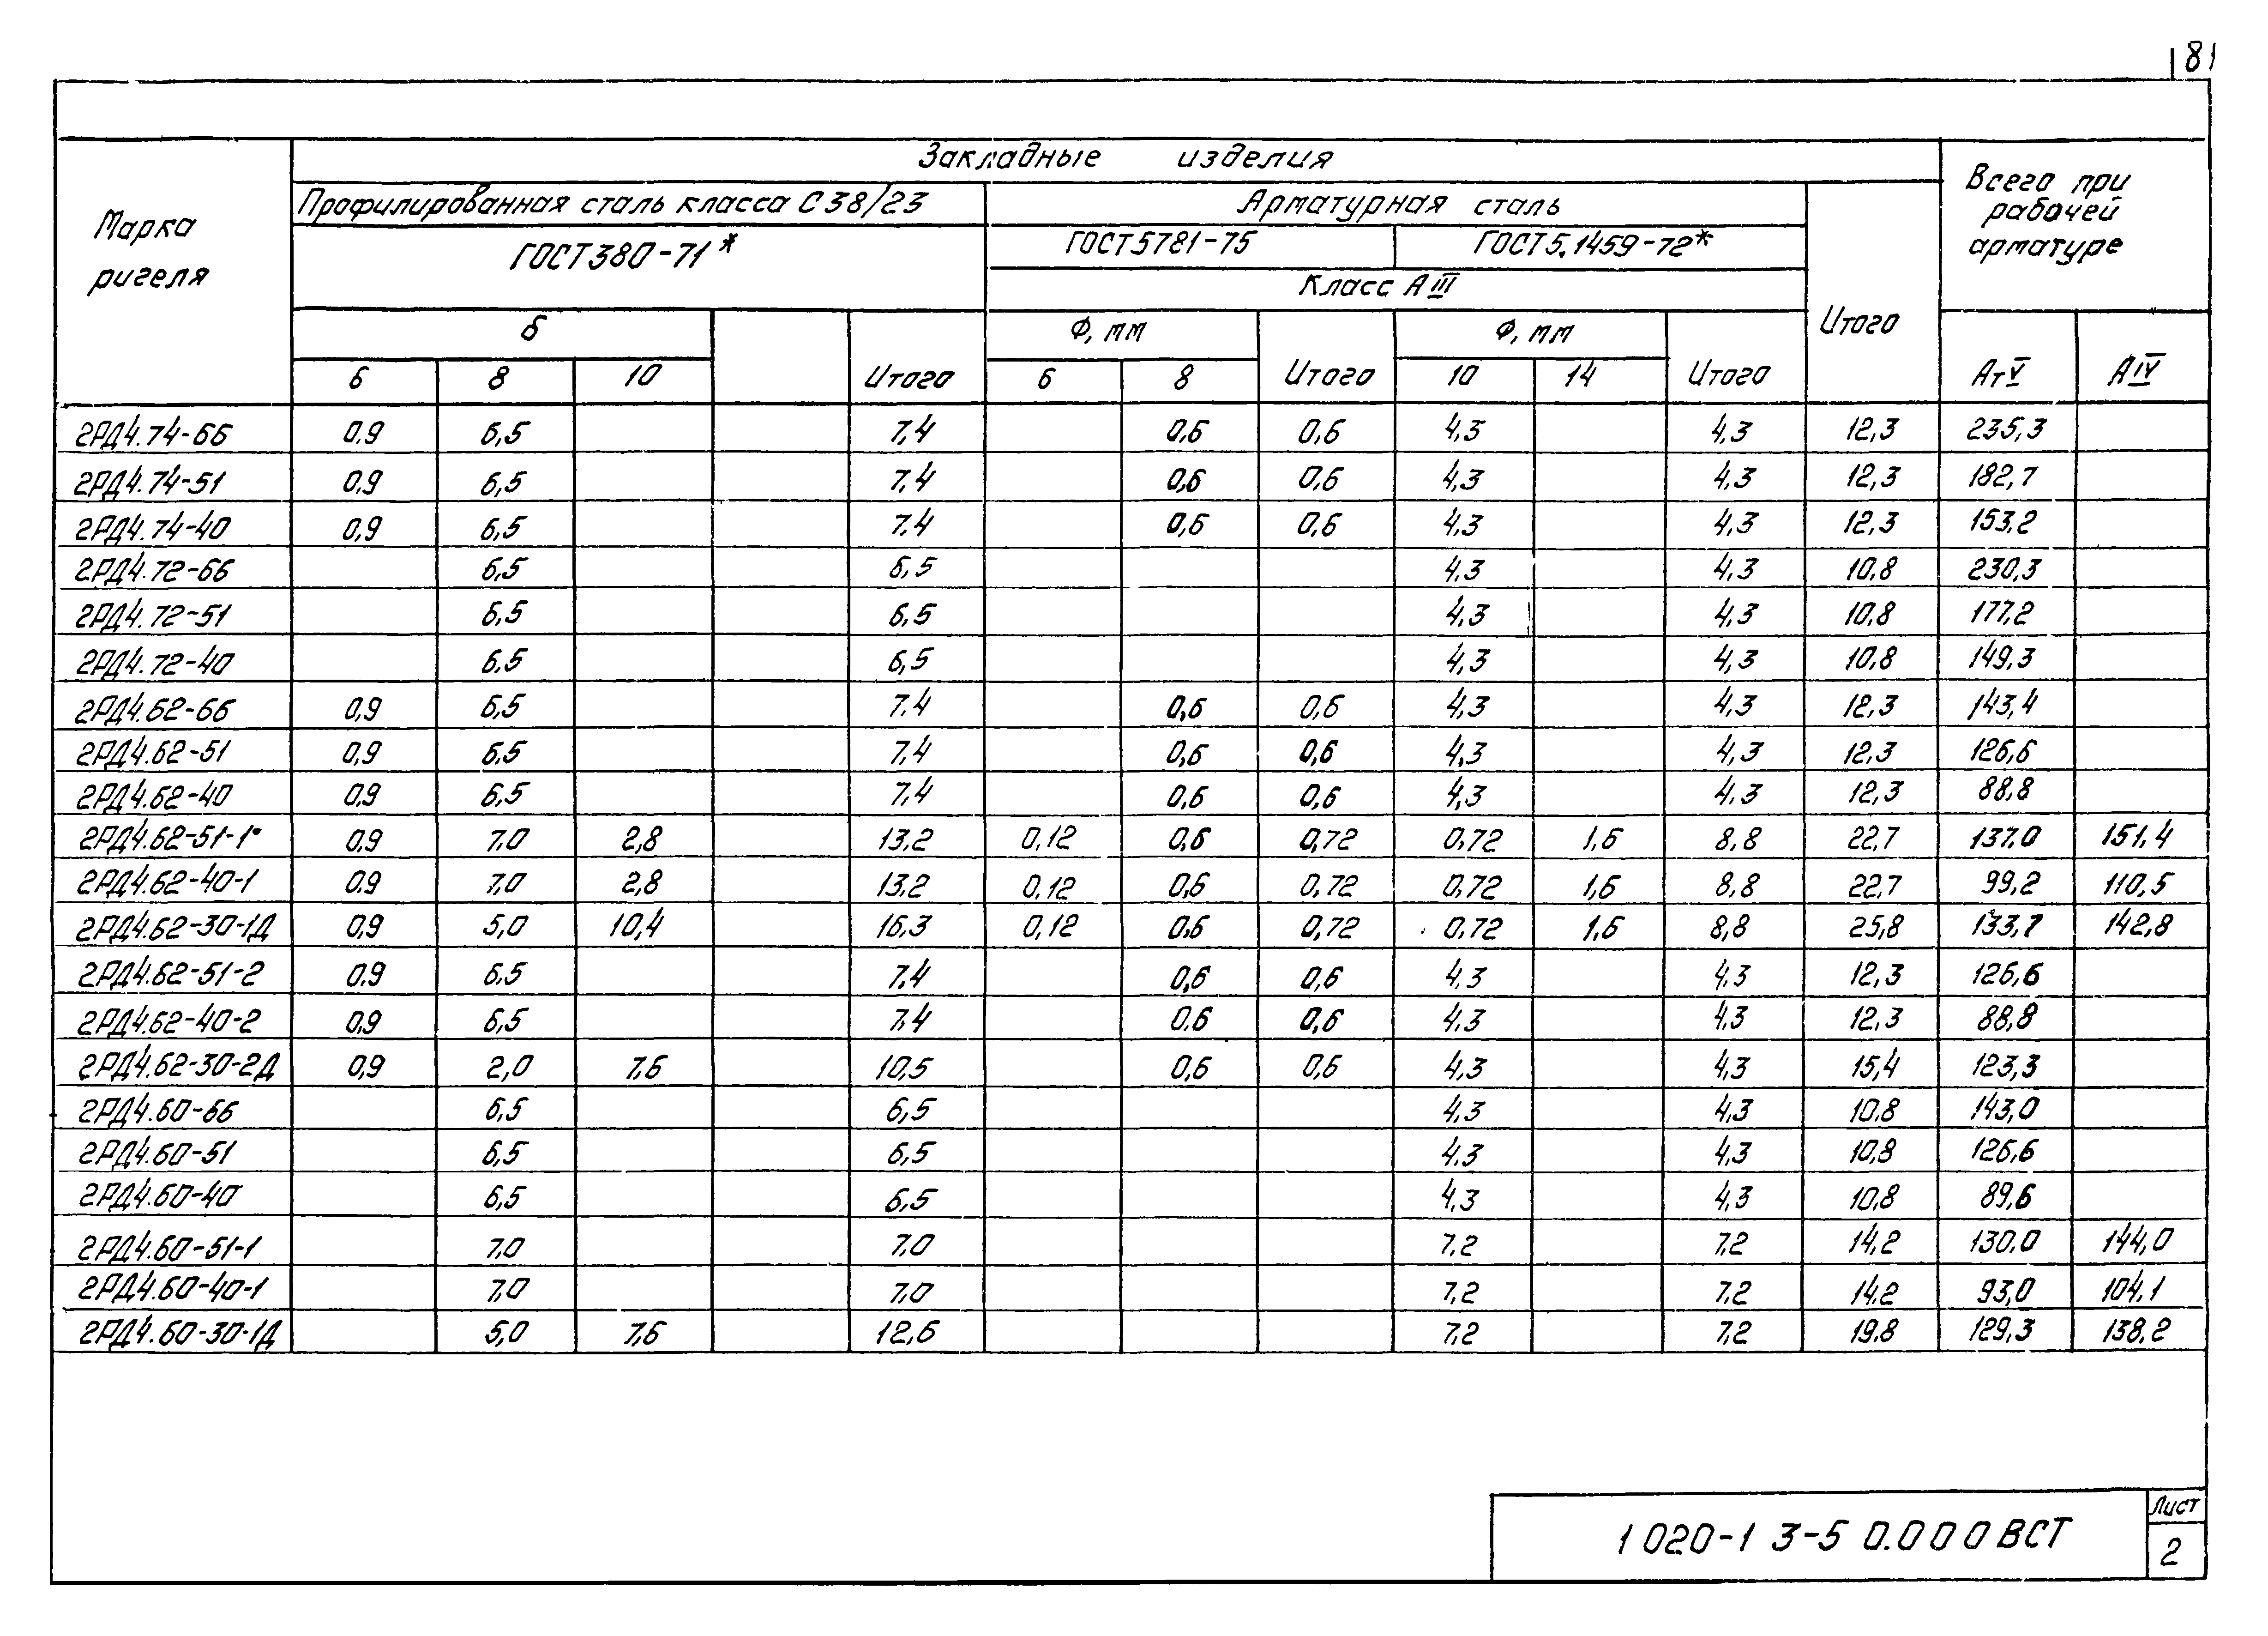 81
Марка ригеля
Закладные изделия
Всего при рабочей арматуре
Профилированная сталь класса С38/23
Арматурная сталь
Итого
ГОСТ380-71*
ГОСТ5781-75
ГОСТ5.1459-72*
Класс АIII
δ
Ф, мм
Ф, мм
6 8 10 Итого 6 8 Итого 10 14 Итого АтV АIV
2РД4.74-66 0,9 6,5 7,4 0,6 0,6 4,3 4,3 12,3 235,3
2РД4.74-51 0,9 6,5 7,4 0,6 0,6 4,3 4,3 12,3 182,7
2РД4.74-40 0,9 6,5 7,4 0,6 0,6 4,3 4,3 12,3 153,2
2РД4.72-66 6,5 6,5 4,3 4,3 10,8 230,3
2РД4.72-51 6,5 6,5 4,3 4,3 10,8 177,2
2РД4.72-40 6,5 6,5 4,3 4,3 10,8 149,3
2РД4.62-66 0,9 6,5 7,4 0,6 0,6 4,3 4,3 12,3 143,4
2РД4.62-51 0,9 6,5 7,4 0,6 0,6 4,3 4,3 12,3 126,6
2РД4.62-40 0,9 6,5 7,4 0,6 0,6 4,3 4,3 12,3 88,8
2РД4.62-51-1 0,9 7,0 2,8 13,2 0,12 0,6 0,72 0,72 1,6 8,8 22,7 137,0 151,4
2РД4.62-40-1 0,9 7,0 2,8 13,2 0,12 0,6 0,72 0,72 1,6 8,8 22,7 99,2 110,5
2РД4.62-30-1Д 0,9 5,0 10,4 16,3 0,12 0,6 0,72 0,72 1,6 8,8 25,8 133,7 142,8
2РД4.62-51-2 0,9 6,5 7,4 0,6 0,6 4,3 4,3 12,3 126,6
2РД4.62-40-2 0,9 6,5 7,4 0,6 0,6 4,3 4,3 12,3 88,8
2РД4.62-30-2Д 0,9 2,0 7,6 10,5 0,6 0,6 4,3 4,3 15,4 123,3
2РД4.60-66 6,5 6,5 4,3 4,3 10,8 143,0
2РД4.60-51 6,5 6,5 4,3 4,3 10,8 126,6
2РД4.60-40 6,5 6,5 4,3 4,3 10,8 89,6
2РД4.60-51-1 7,0 7,0 7,2 7,2 14,2 130,0 144,0
2РД4.60-40-1 7,0 7,0 7,2 7,2 14,2 93,0 104,1
2РД4.60-30-1Д 5,0 7,6 12,6 7,2 7,2 19,8 129,3 138,2
1 020-1 3-5 0.000ВСТ
Лист
2